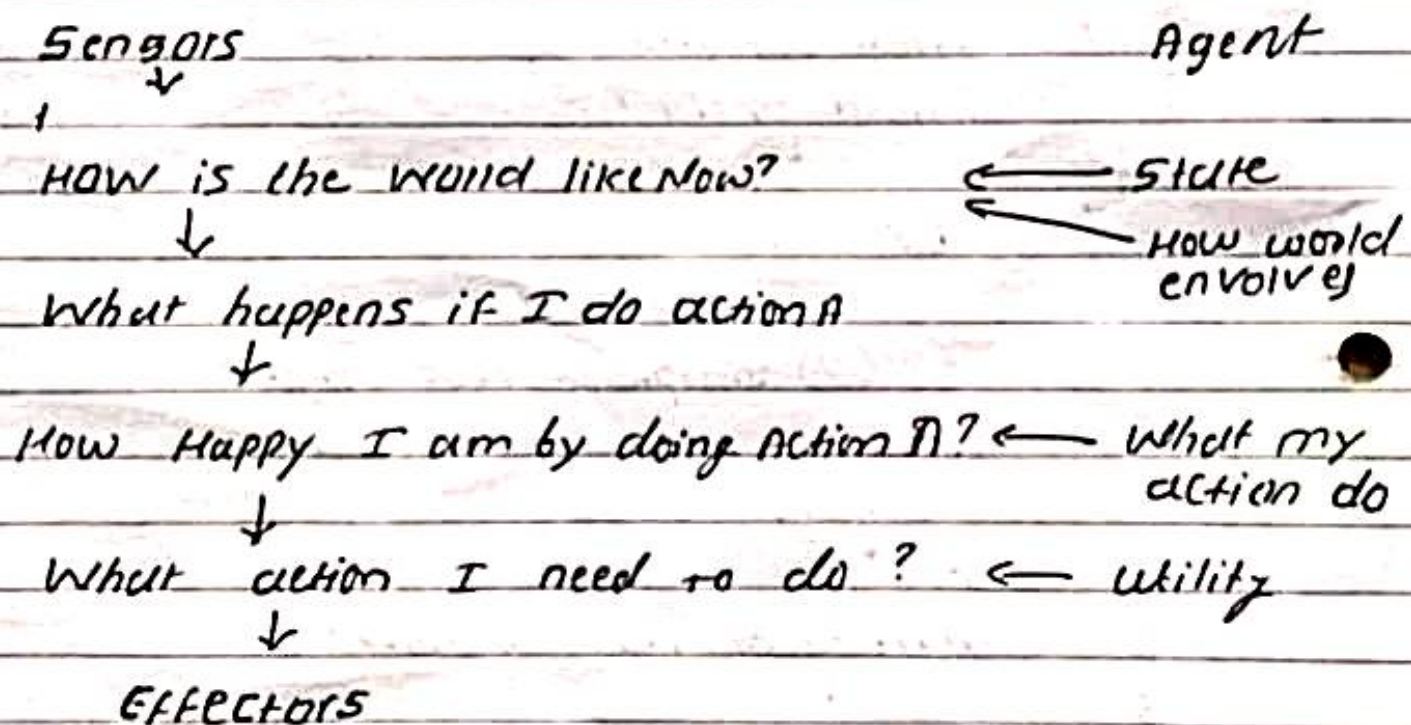 Sensors Agent
↓
HOW is the world like Now? ← State
↓ ← How world
envolves
What happens if I do action A
↓
How Happy I am by doing Action A? ← What my
action do
↓
What action I need to do? ← utility
↓
Effectors